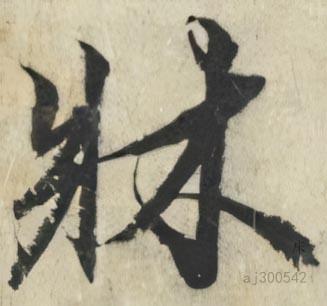 牀
aj300542